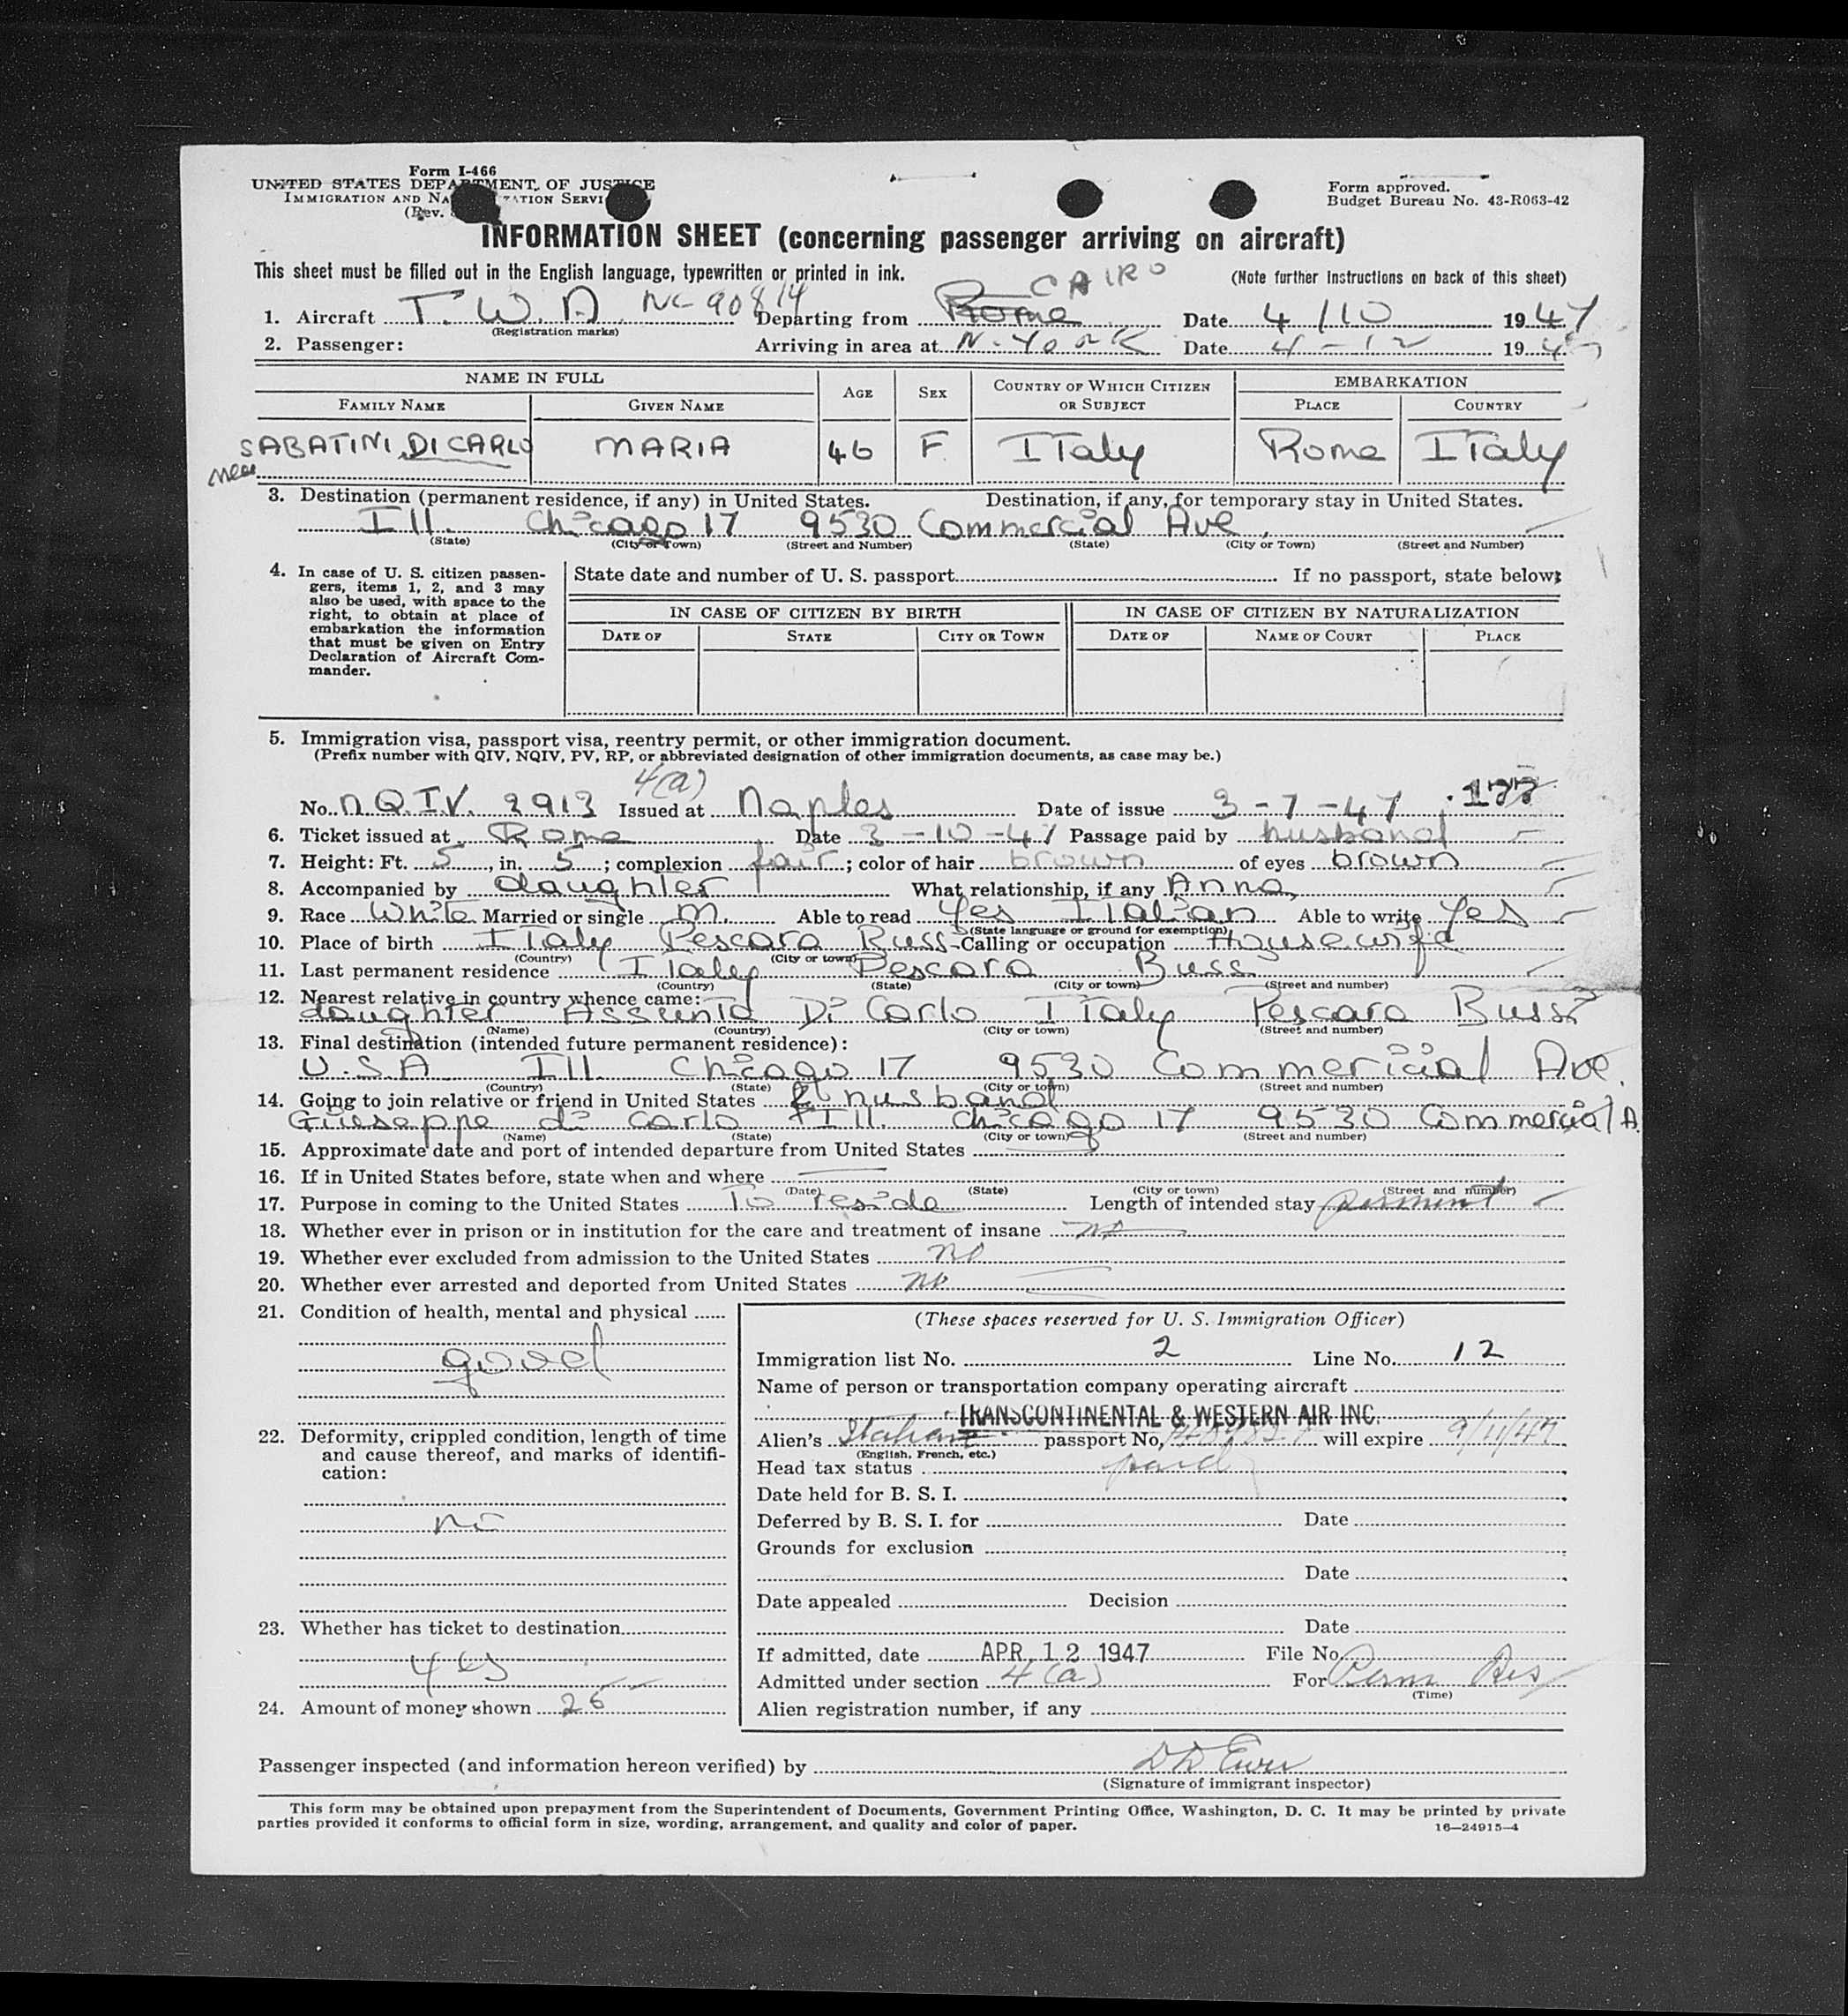 Form I-466
UNITED STATES DEPARTMENT OF JUSTICE
IMMIGRATION AND NATURALIZATION SERVICE
(Rev.
Form approved.
Budget Bureau No. 43-R063-42
INFORMATION SHEET (concerning passenger arriving on aircraft)
This sheet must be filled out in the English language, typewritten or printed in ink.
(Note further instructions on back of this sheet)
CAIRO
1. Aircraft T.W.A. NC 90814 Departing from Rome Date 4/10 1947
(Registration marks)
2. Passenger: Arriving in area at N. York Date 4-12 1947
NAME IN FULL AGE SEX COUNTRY OF WHICH CITIZEN OR SUBJECT EMBARKATION
FAMILY NAME GIVEN NAME PLACE COUNTRY
SABATINI, DI CARLO MARIA 46 F. ITaly Rome ITaly
nee
3. Destination (permanent residence, if any) in United States. Destination, if any, for temporary stay in United States.
Ill. Chicago 17 9530 Commercial Ave.
(State) (City or Town) (Street and Number) (State) (City or Town) (Street and Number)
4. In case of U. S. citizen passengers, items 1, 2, and 3 may also be used, with space to the right, to obtain at place of embarkation the information that must be given on Entry Declaration of Aircraft Commander.
State date and number of U. S. passport If no passport, state below:
IN CASE OF CITIZEN BY BIRTH IN CASE OF CITIZEN BY NATURALIZATION
DATE OF STATE CITY OR TOWN DATE OF NAME OF COURT PLACE
5. Immigration visa, passport visa, reentry permit, or other immigration document.
(Prefix number with QIV, NQIV, PV, RP, or abbreviated designation of other immigration documents, as case may be.)
4(a)
No. N.Q.I.V. 2913 Issued at Naples Date of issue 3-7-47
6. Ticket issued at Rome Date 3-10-47 Passage paid by husband
7. Height: Ft. 5, in. 5; complexion fair; color of hair brown of eyes brown
8. Accompanied by daughter What relationship, if any Anna,
9. Race White Married or single M. Able to read Yes ITalian Able to write Yes
(State language or ground for exemption)
10. Place of birth ITaly Pescara Bussi Calling or occupation Housewife
(Country) (City or town)
11. Last permanent residence ITaly Pescara Bussi
(Country) (State) (City or town) (Street and number)
12. Nearest relative in country whence came:
daughter Assunta Di Carlo ITaly Pescara Bussi
(Name) (Country) (City or town) (Street and number)
13. Final destination (intended future permanent residence):
U.S.A Ill. Chicago 17 9530 Commericial Ave.
(Country) (State) (City or town) (Street and number)
14. Going to join relative or friend in United States husband
Giuseppe di Carlo Ill. Chicago 17 9530 Commercial A.
(Name) (State) (City or town) (Street and number)
15. Approximate date and port of intended departure from United States
16. If in United States before, state when and where
(Date) (State) (City or town) (Street and number)
17. Purpose in coming to the United States To reside Length of intended stay perminent
18. Whether ever in prison or in institution for the care and treatment of insane no
19. Whether ever excluded from admission to the United States no
20. Whether ever arrested and deported from United States no
21. Condition of health, mental and physical
good
22. Deformity, crippled condition, length of time and cause thereof, and marks of identification:
no
23. Whether has ticket to destination
yes
24. Amount of money shown 25
(These spaces reserved for U. S. Immigration Officer)
Immigration list No. 2 Line No. 12
Name of person or transportation company operating aircraft
TRANSCONTINENTAL & WESTERN AIR INC.
Alien's Italian passport No. will expire 9/11/47
(English, French, etc.)
Head tax status paid
Date held for B. S. I.
Deferred by B. S. I. for Date
Grounds for exclusion
Date
Date appealed Decision
Date
If admitted, date APR 12 1947 File No.
Admitted under section 4(a) For Perm Res
(Time)
Alien registration number, if any
Passenger inspected (and information hereon verified) by
(Signature of immigrant inspector)
This form may be obtained upon prepayment from the Superintendent of Documents, Government Printing Office, Washington, D. C. It may be printed by private
parties provided it conforms to official form in size, wording, arrangement, and quality and color of paper.
16—24915-4